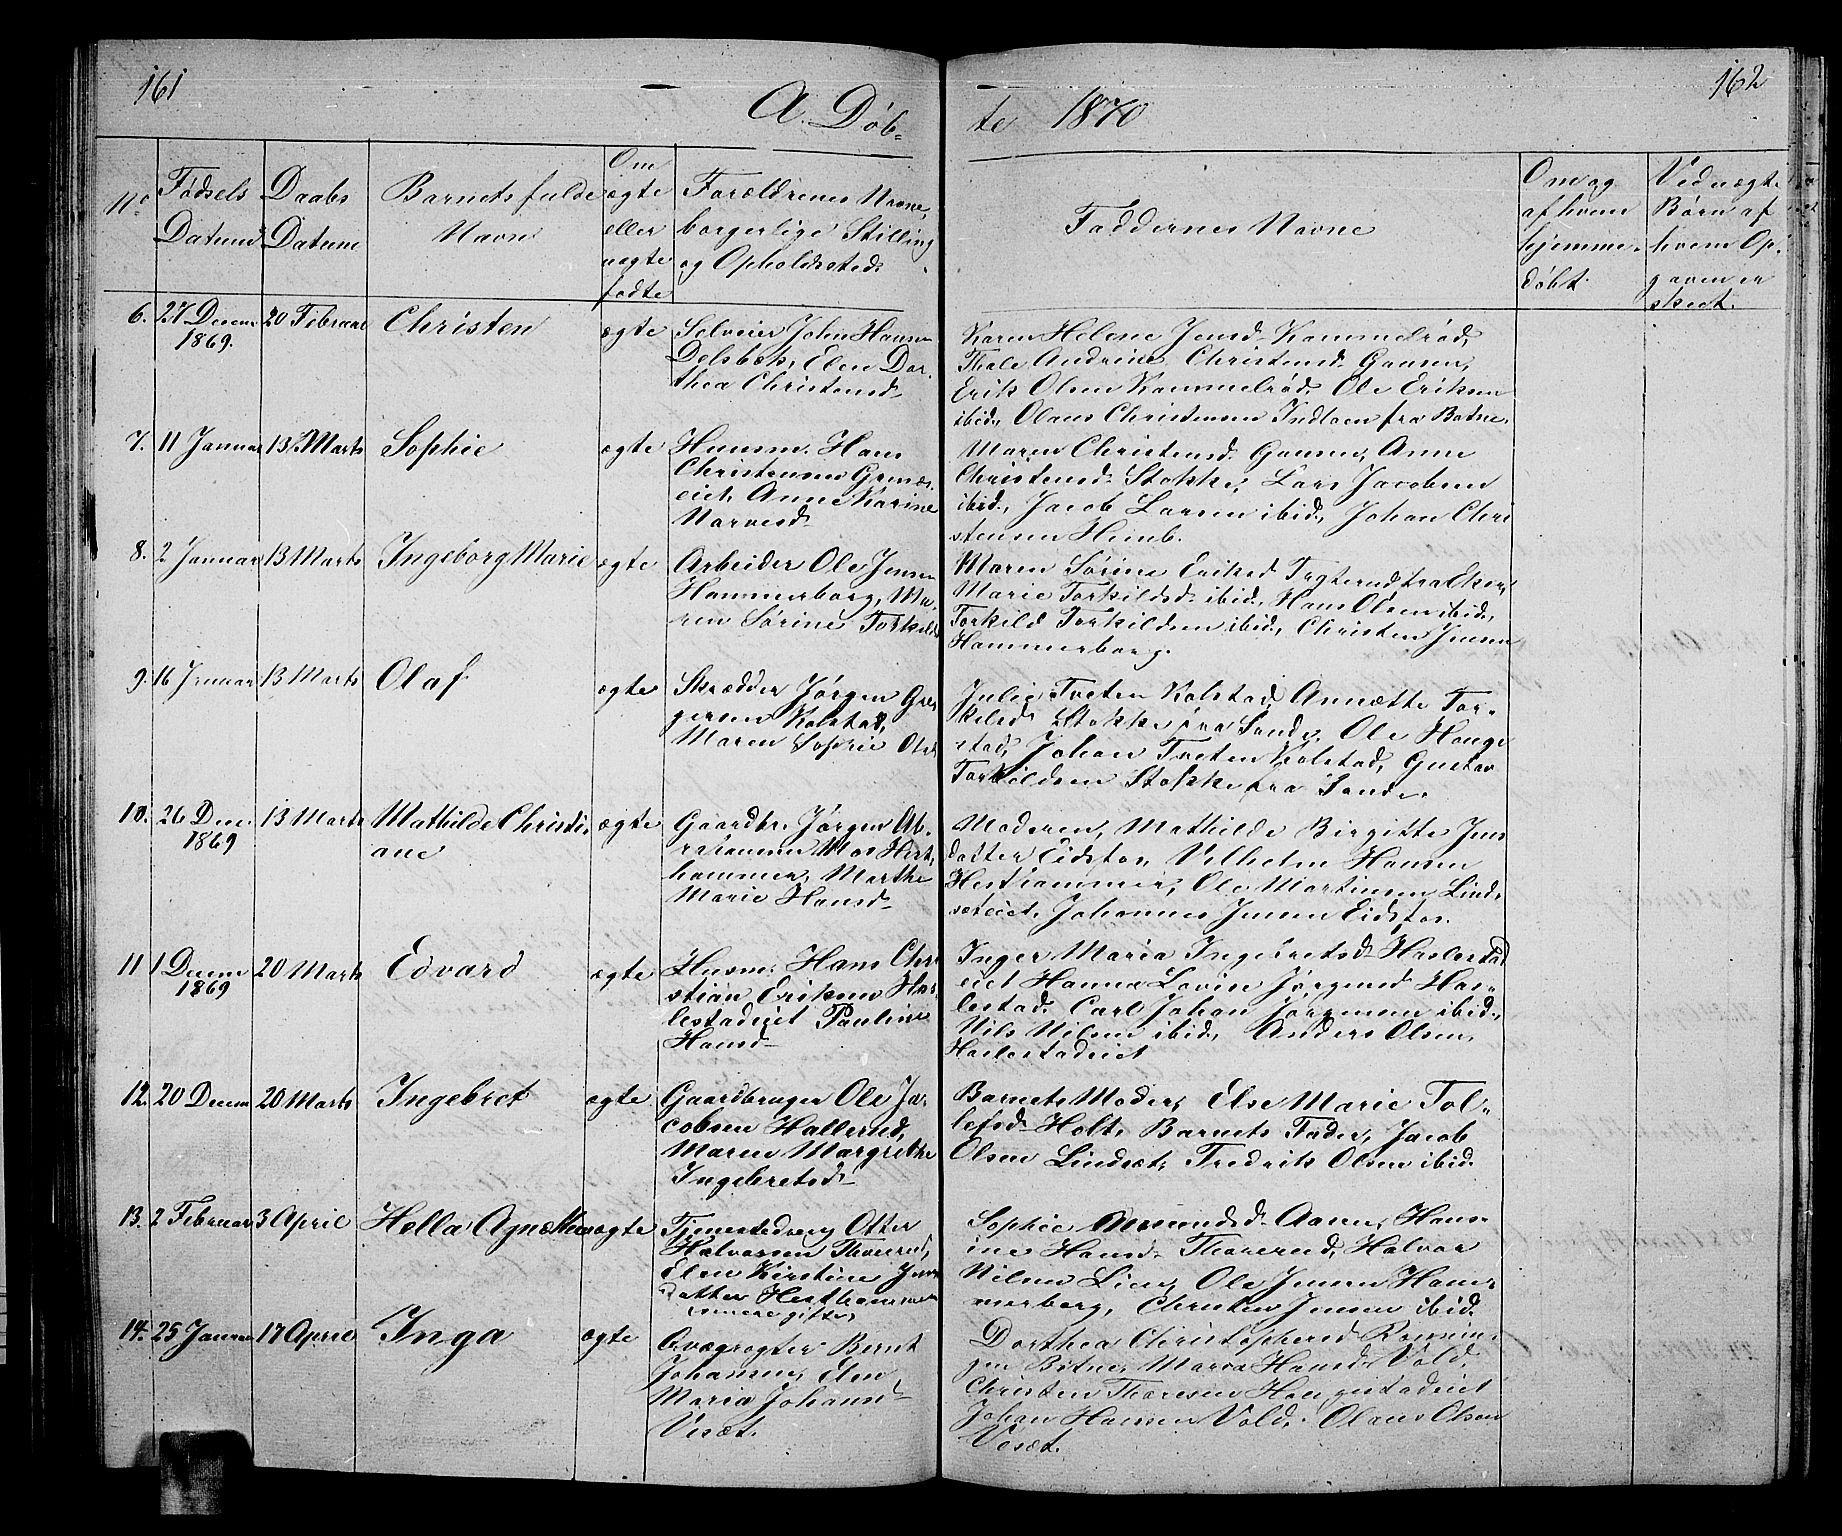 161
162
A. Døb-
te 1870
No
Fødsels
Datum
Daabs
Datum
Barnets fulde
Navn
Om
ægte
eller
uægte
fødte
Forældrenes Navne,
borgerlige Stilling
og Opholdssted.
Faddernes Navne
Om og
af hvem
hjemme-
døbt.
Ved uægte
Børn af
hvem Op-
gaven er
skeet.
6. 27 Decem 1869. 20 Februar Christen ægte
Selveier John Hansen
Delsbek, Elen Dor-
thea Christensd
Karen Helene Jensd Kammelrød,
Thale Andrine Christensd Gausen,
Erik Olsen Kammelrød, Ole Eriksen
ibid, Olaus Christensen Indlaen fra Botne.
7. 11 Januar 13 Marts Sophie ægte
Husm. Hans
Christensen
eiet, Anne Karine
Narvesd
Maren Christensd Gausen, Anne
Christensd Stokke, Lars Jacobsen
ibid., Jacob Larsen ibid, Johan Chri
stensen Humb.
8. 2 Januar 13 Marts Ingeborg Marie ægte
Arbeider Ole Jensen
Hammerborg, Ma-
ren Sørine Torkilds
Maren Sørine Eriksd fra Eker,
Marie Torkildsd ibid, Hans Olsen ibid,
Torkild Torkildsen ibid, Christen Jensen
Hammerborg.
9. 16 Januar 13 Marts Olaf ægte
Skrædder Jørgen Gre-
gersen Kolstad,
Maren Sophie Olsd
Julie Tveten Kolstad, Annette Tor-
kilsd Stokke fra Sande, Ole Hauge
stad, Johan Tveten Kolstad, Gustav
Torkildsen Stokke fra Sande.
10. 26 Decem 1869 13 Marts Mathilde Christi-
ane ægte
Gaardbr. Jørgen Ab-
rahamsen Moe Hest-
hammer, Marthe
Marie Hansd
Moderen, Mathilde Birgitte Jens
datter Eidsfos, Vilhelm Hansen
Hesthammer, Ole Martinsen Lind-
sæteiet, Johannes Jensen Eidsfos.
11 1 Decem 1869 20 Marts Edvard ægte
Husm. Hans Chri
stian Eriksen Has-
lestadeiet Pauline
Hansd
Inger Maria Ingebretsd Haslestad
eiet Hanna Lovise Jørgensd Has-
lestad, Carl Johan Jørgensen ibid,
Nils Nilsen ibid, Anders Olsen,
Haslestadeiet
12. 20 Decem 20 Marts Ingebret ægte
Gaardbruger Ole Ja-
cobsen Hallerud,
Maren Margrethe
Ingebretsd
Barnets Moder, Else Marie Tol-
lefsd Holt, Barnets Fader, Jacob
Olsen Lindsæt, Fredrik Olsen ibid.
13. 2 Februar 3 April Hella Agnethe uægte
Tjenestedreng Otter
Halvorsen Thorerud,
Elen Kirstine Jens
datter Hesthammeren
senere gifte
Sophie Amundsd Aasen, Hans-
ine Hansd Thorerud, Halvor
Nilsen Lien, Ole Jensen Ham-
merborg, Christen Jensen ibid.
14. 25 Januar 17 April Inga ægte
Qvægrøgter Bernt
Johansen, Elen
Maria Johansd
Vesæt.
Dorthea Christophersd
Botne, Maria Hansd Vold,
Christen Thoresen Haugestadeiet
Johan Hansen Vold, Olaus Olsen
Vesæt.